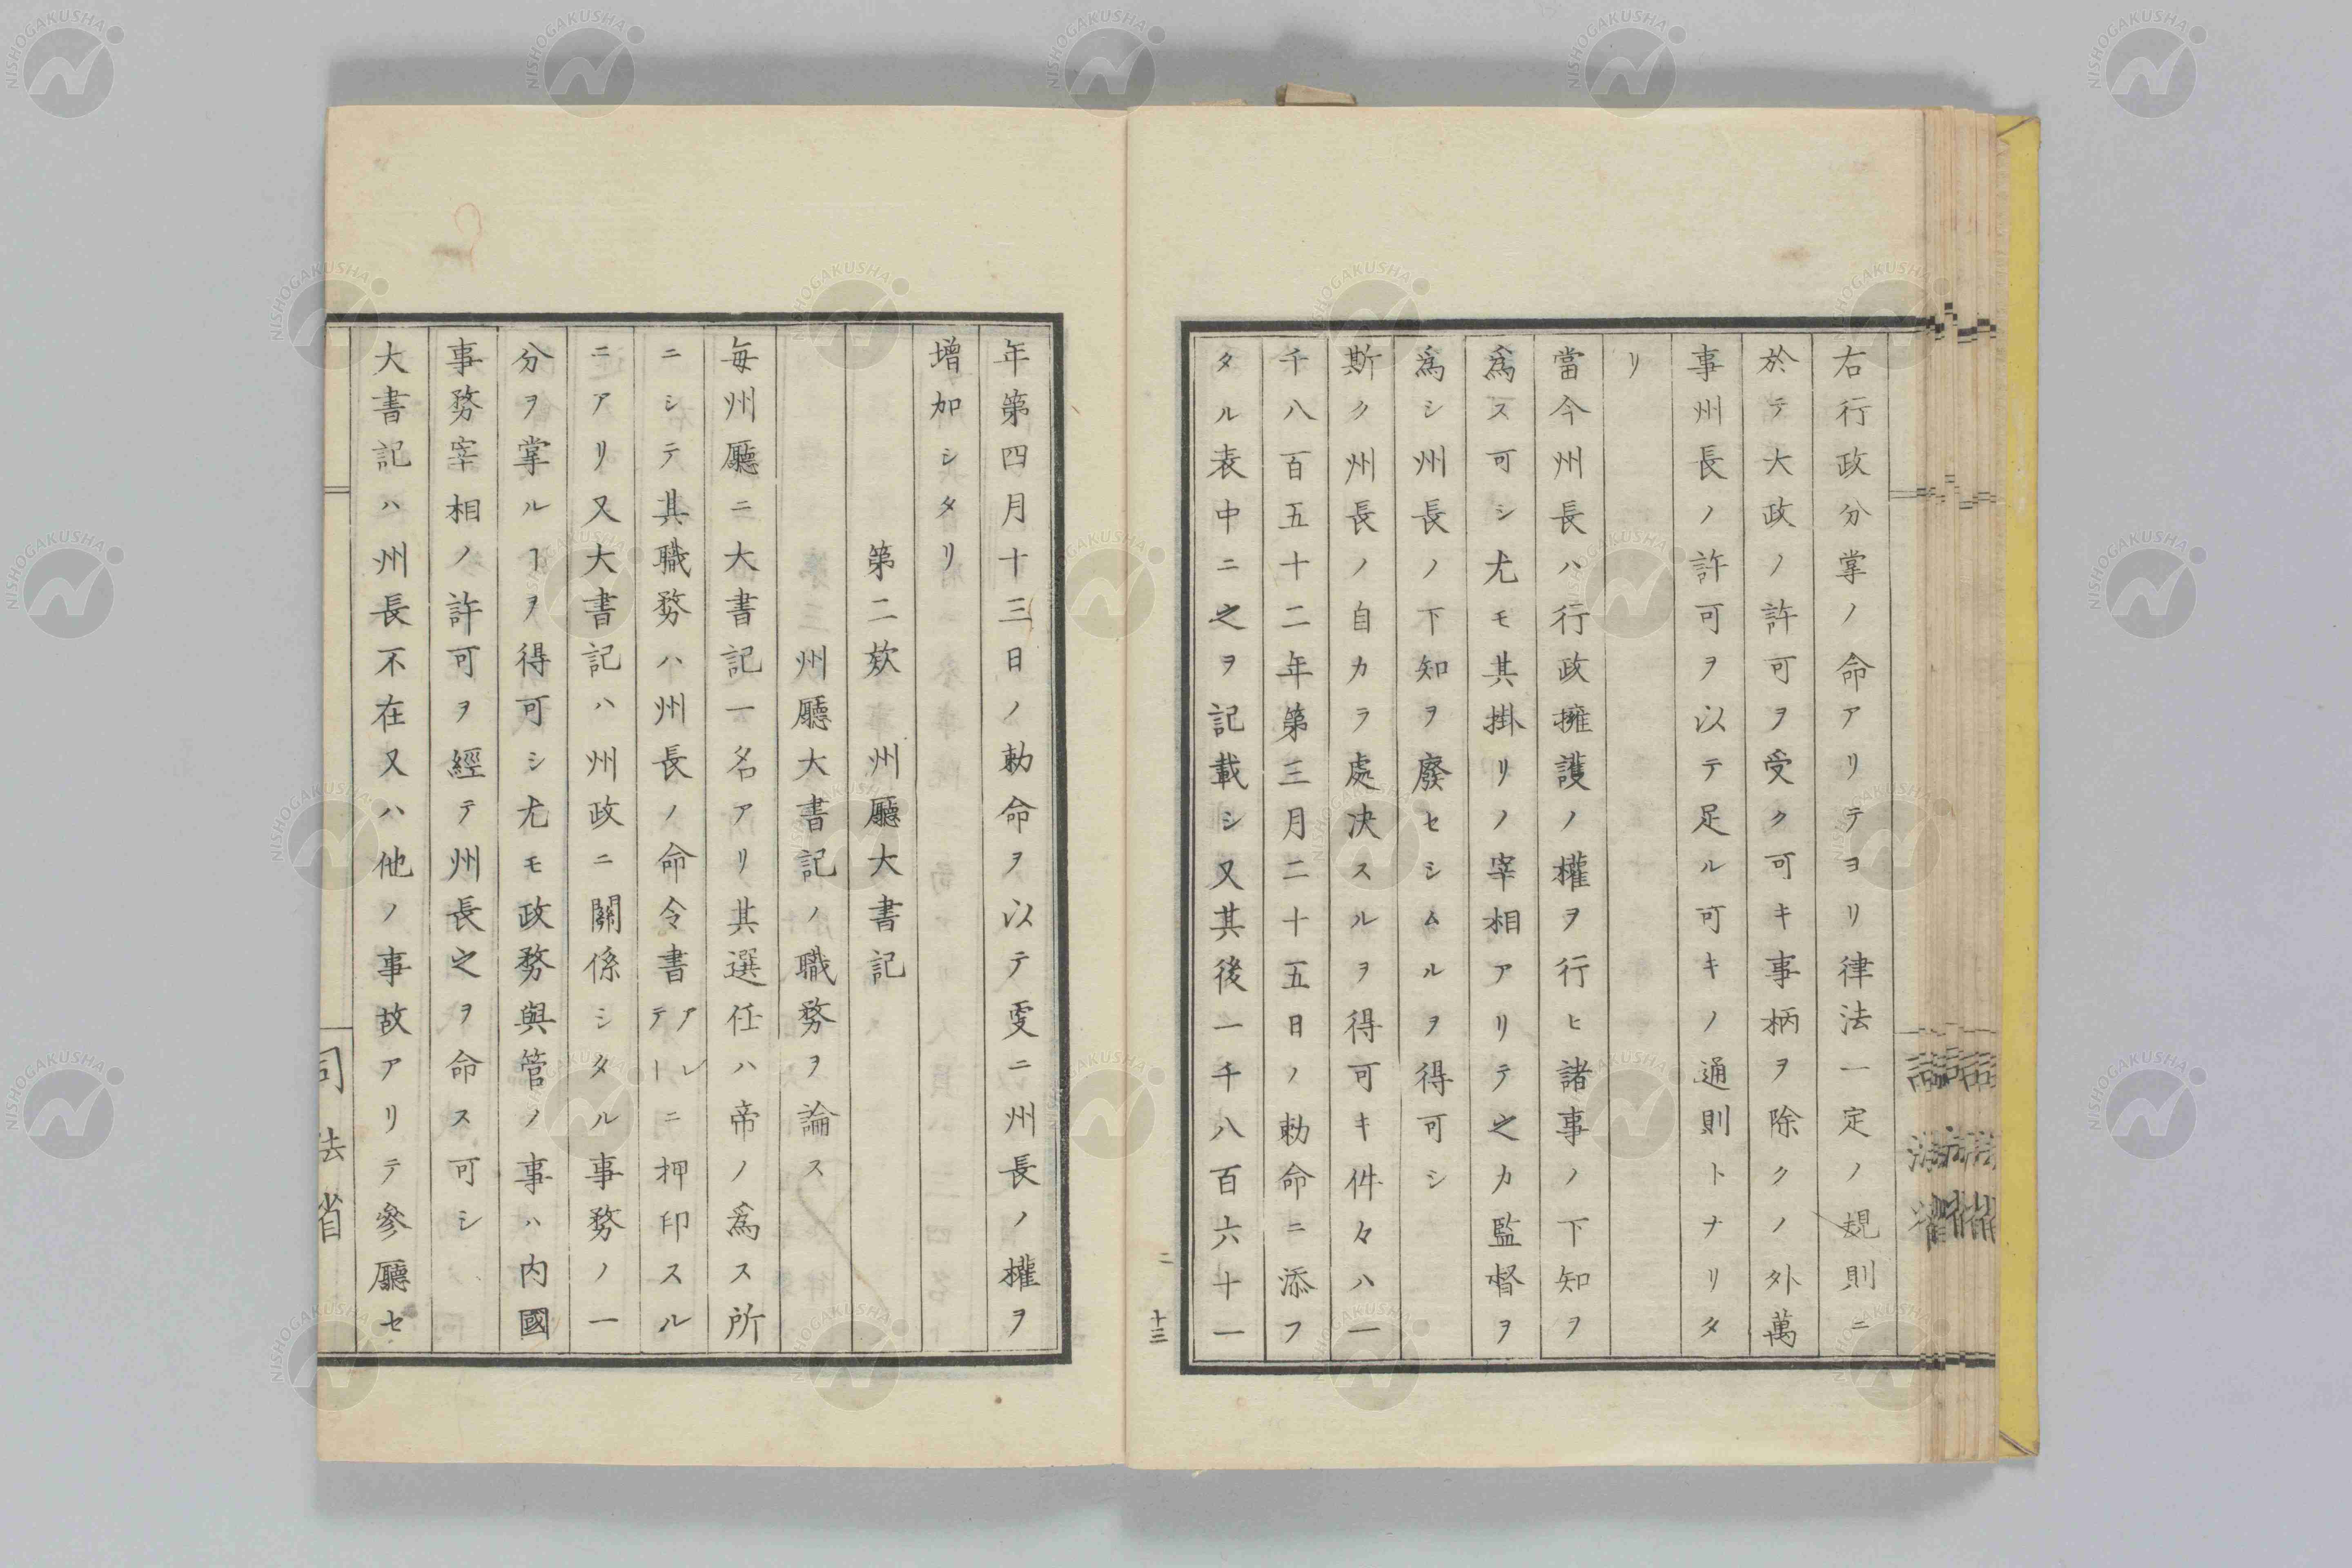 右行政分掌ノ命アリテヨリ律法一定ノ規則ニ
於テ大政ノ許可ヲ受ク可キ事柄ヲ除クノ外萬
事州長ノ許可ヲ以テ足ル可キノ通則トナリタ
リ
當今州長ハ行政擁護ノ權ヲ行ヒ諸事ノ下知ヲ
爲ス可シ尤モ其掛リノ宰相アリテ之カ監督ヲ
爲シ州長ノ下知ヲ廢セシムルヲ得可シ
斯ク州長ノ自カラ處决スルヲ得可キ件々ハ一
千八百五十二年第三月二十五日ノ勅命ニ添フ
タル表中ニ之ヲ記載シ又其後一千八百六十一
二
十三
年第四月十三日ノ勅命ヲ以テ更ニ州長ノ權ヲ
増加シタリ
第二欵 州廳大書記
州廳大書記ノ職務ヲ論ス
毎州廳ニ大書記一名アリ其選任ハ帝ノ爲ス所
ニシテ其職務ハ州長ノ命令書アレテーニ押印スル
ニアリ又大書記ハ州政ニ關係シタル事務ノ一
分ヲ掌ルヿヲ得可シ尤モ政務與管ノ事ハ内國
事務宰相ノ許可ヲ經テ州長之ヲ命ス可シ
大書記ハ州長不在又ハ他ノ事故アリテ參廳セ
司法省
NISHOGAKUSHA